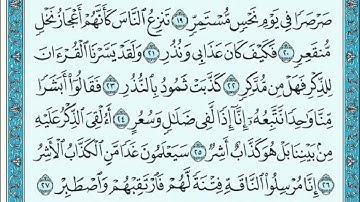 صَرْصَرًا فِي يَوْمِ نَحْسٍ مُّسْتَمِرٍّ ١٩ تَنزِعُ ٱلنَّاسَ كَأَنَّهُمْ أَعْجَازُ نَخْلٍ
مُّنقَعِرٍ ٢٠ فَكَيْفَ كَانَ عَذَابِي وَنُذُرِ ٢١ وَلَقَدْ يَسَّرْنَا ٱلْقُرْءَانَ
لِلذِّكْرِ فَهَلْ مِن مُّدَّكِرٍ ٢٢ كَذَّبَتْ ثَمُودُ بِٱلنُّذُرِ ٢٣ فَقَالُوٓا۟ أَبَشَرًا
مِّنَّا وَٰحِدًا نَّتَّبِعُهُۥٓ إِنَّآ إِذًا لَّفِي ضَلَٰلٍ وَسُعُرٍ ٢٤ أَءُلْقِيَ ٱلذِّكْرُ عَلَيْهِ
مِنۢ بَيْنِنَا بَلْ هُوَ كَذَّابٌ أَشِرٌ ٢٥ سَيَعْلَمُونَ غَدًا مَّنِ ٱلْكَذَّابُ ٱلْأَشِرُ
٢٦ إِنَّا مُرْسِلُوا۟ ٱلنَّاقَةِ فِتْنَةً لَّهُمْ فَٱرْتَقِبْهُمْ وَٱصْطَبِرْ ٢٧